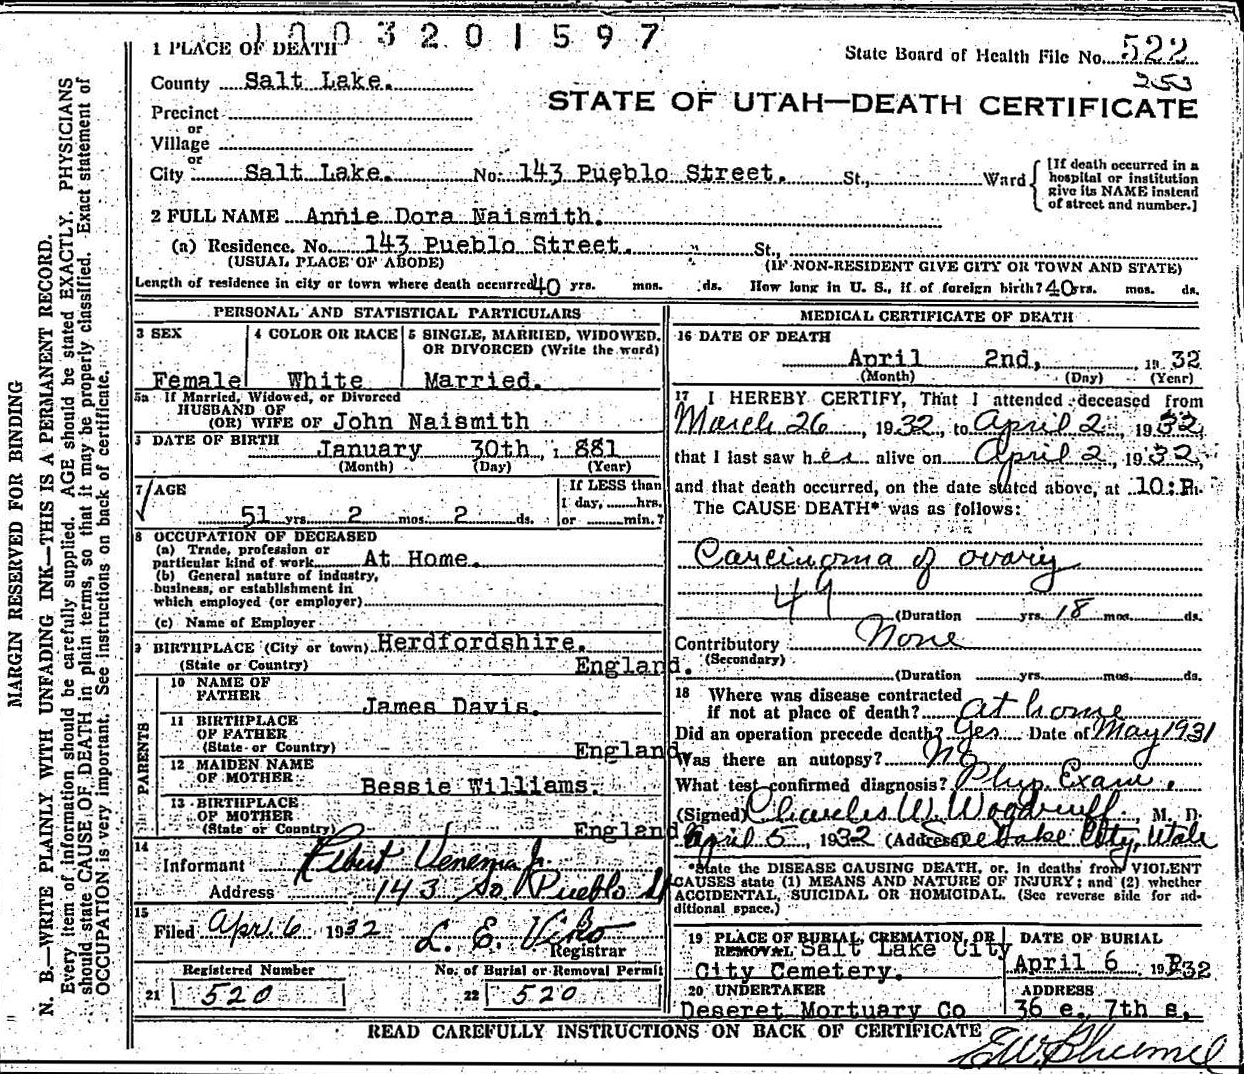 1003201597
1 PLACE OF DEATH
State Board of Health File No. 522
253
County Salt Lake.
STATE OF UTAH—DEATH CERTIFICATE
Precinct
or
Village
or
City Salt Lake. No. 143 Pueblo Street. St., Ward
[If death occurred in a hospital or institution give its NAME instead of street and number.]
2 FULL NAME Annie Dora Naismith.
(a) Residence. No. 143 Pueblo Street. St.,
(USUAL PLACE OF ABODE) (IF NON-RESIDENT GIVE CITY OR TOWN AND STATE)
Length of residence in city or town where death occurred 40 yrs. mos. ds. How long in U. S., if of foreign birth? 40 yrs. mos. ds.
PERSONAL AND STATISTICAL PARTICULARS
3 SEX
Female
4 COLOR OR RACE
White
5 SINGLE, MARRIED, WIDOWED, OR DIVORCED (Write the word)
Married.
5a If Married, Widowed, or Divorced
HUSBAND OF
(OR) WIFE OF John Naismith
DATE OF BIRTH
January 30th, 1881
(Month) (Day) (Year)
7 AGE
51 yrs. 2 mos. 2 ds.
If LESS than
1 day, hrs.
or min.?
8 OCCUPATION OF DECEASED
(a) Trade, profession or
particular kind of work At Home.
(b) General nature of industry,
business, or establishment in
which employed (or employer)
(c) Name of Employer
9 BIRTHPLACE (City or town) Herdfordshire.
(State or Country) England.
PARENTS
10 NAME OF
FATHER James Davis.
11 BIRTHPLACE
OF FATHER
(State or Country) England
12 MAIDEN NAME
OF MOTHER Bessie Williams.
13 BIRTHPLACE
OF MOTHER
(State or Country) England
14
Informant Albert Venema Jr.
Address 143 So. Pueblo St
15
Filed Apr. 6 1932 L. E. Viko
Registrar
Registered Number No. of Burial or Removal Permit
21 520 22 520
MEDICAL CERTIFICATE OF DEATH
16 DATE OF DEATH
April 2nd, 1932
(Month) (Day) (Year)
17 I HEREBY CERTIFY, That I attended deceased from
March 26, 1932, to April 2, 1932,
that I last saw her alive on April 2, 1932,
and that death occurred, on the date stated above, at 10:P.m.
The CAUSE DEATH* was as follows:
Carcinoma of ovary
49
(Duration yrs. 18 mos. ds.
Contributory None
(Secondary)
(Duration yrs. mos. ds.
18 Where was disease contracted
if not at place of death? at home
Did an operation precede death? Yes Date of May 1931
Was there an autopsy? No
What test confirmed diagnosis? Phys. Exam.
(Signed) Charles W. Woodruff, M. D.
April 5 1932 (Address) Salt Lake City, Utah
*State the DISEASE CAUSING DEATH, or, in deaths from VIOLENT
CAUSES state (1) MEANS AND NATURE OF INJURY; and (2) whether
ACCIDENTAL, SUICIDAL OR HOMICIDAL. (See reverse side for additional space.)
19 PLACE OF BURIAL, CREMATION, OR
REMOVAL Salt Lake City
City Cemetery.
DATE OF BURIAL
April 6 1932
20 UNDERTAKER
Deseret Mortuary Co
ADDRESS
36 e. 7th s.
READ CAREFULLY INSTRUCTIONS ON BACK OF CERTIFICATE
MARGIN RESERVED FOR BINDING
N. B.—WRITE PLAINLY WITH UNFADING INK—THIS IS A PERMANENT RECORD.
Every item of information should be carefully supplied. AGE should be stated EXACTLY. PHYSICIANS
should state CAUSE OF DEATH in plain terms, so that it may be properly classified. Exact statement of
OCCUPATION is very important. See instructions on back of certificate.